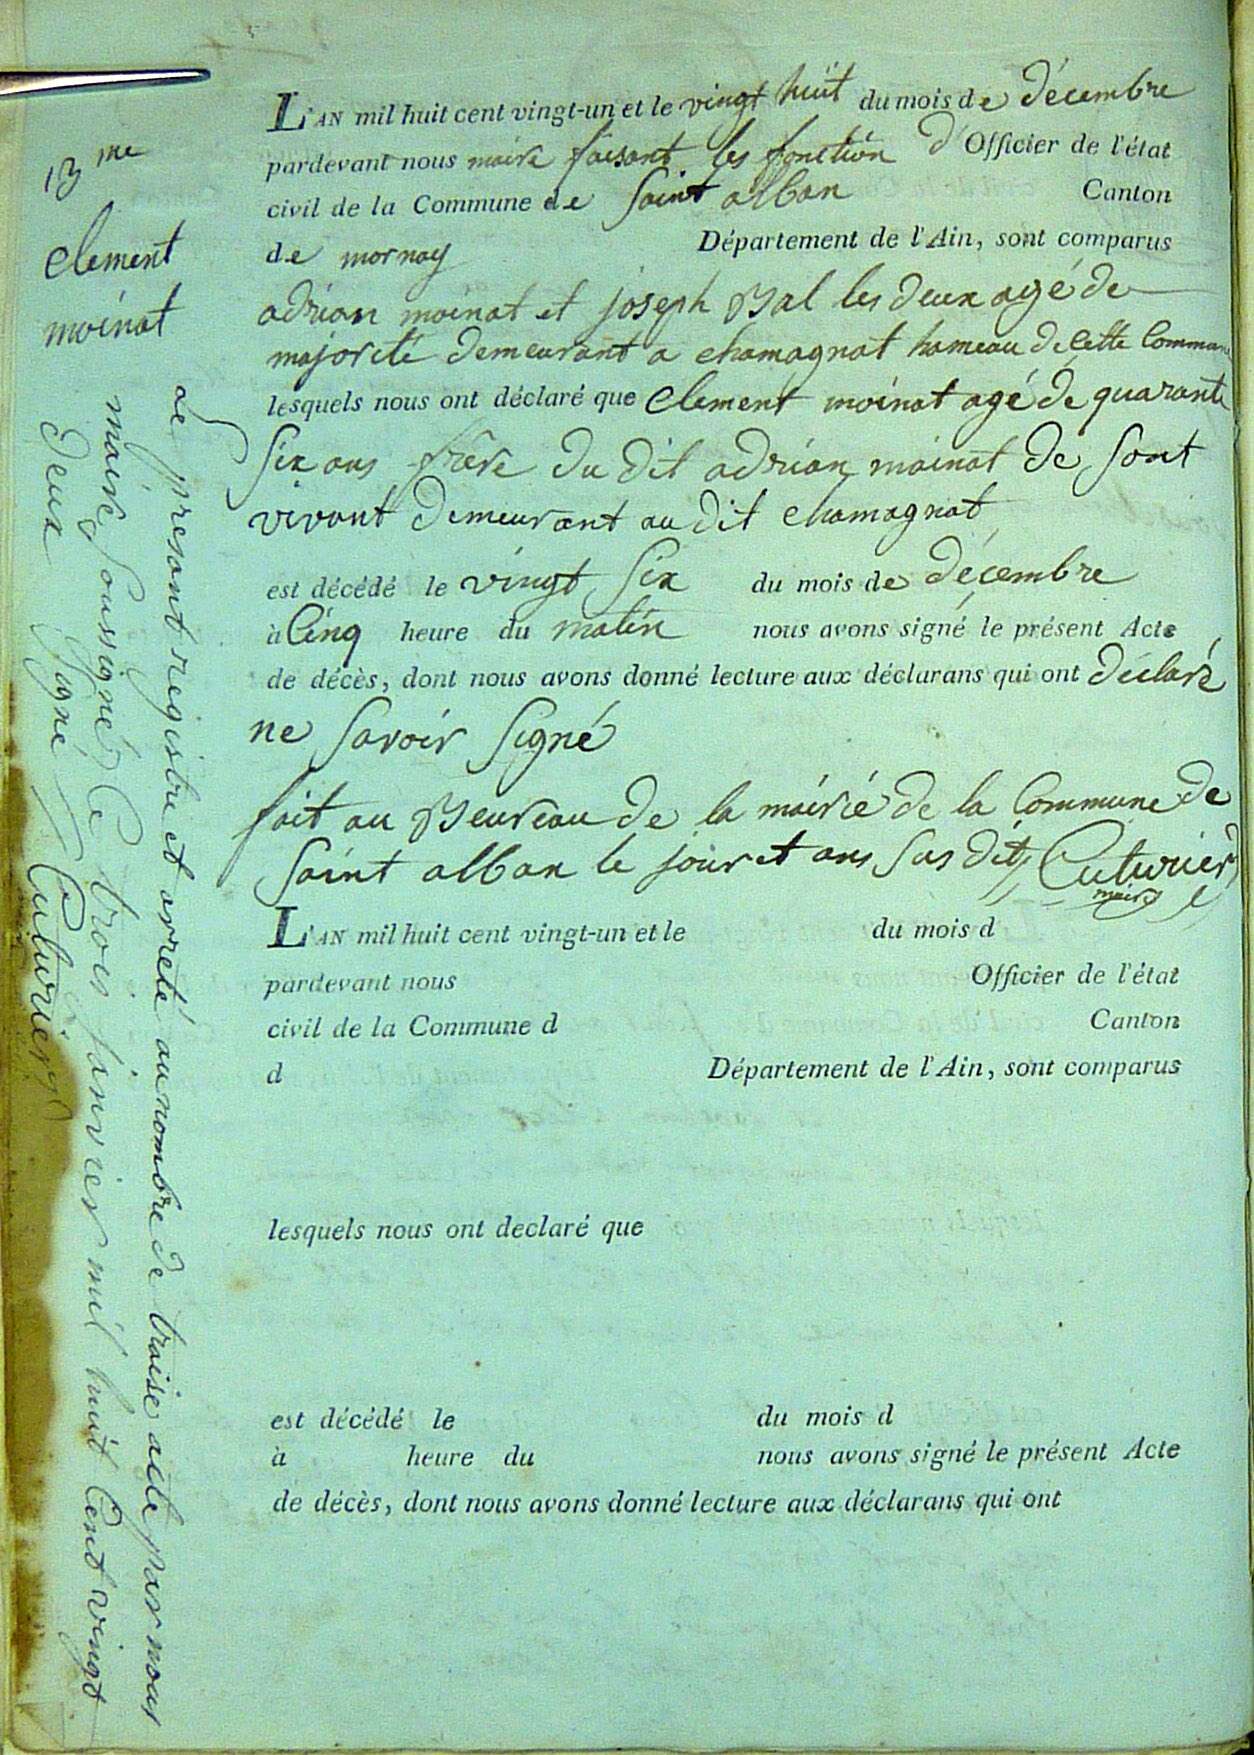 13me
Clement
moinat
L'AN mil huit cent vingt-un et le vingt huit du mois de décembre
pardevant nous maire faisant les fonction d'Officier de l'état
civil de la Commune de Saint alban Canton
de mornay Département de l'Ain, sont comparus
adrian moinat et joseph Bal les deux agé de
majorité demeurant a chamagnat hameau de Cette Commune
lesquels nous ont déclaré que Clement moinat agé de quarante
Six ans frere du dit adrian moinat de Sont
vivant demeurant au dit chamagnat
est décédé le vingt Six du mois de décembre
à Cinq heure du matin nous avons signé le présent Acte
de décès, dont nous avons donné lecture aux déclarans qui ont déclaré
ne Savoir Signé
fait au Beureau de la mairie de la Commune de
Saint alban le jour et ans Sus dit Cuturier
maire
L'AN mil huit cent vingt-un et le du mois d
pardevant nous Officier de l'état
civil de la Commune d Canton
d Département de l'Ain, sont comparus
lesquels nous ont declaré que
est décédé le du mois d
à heure du nous avons signé le présent Acte
de décès, dont nous avons donné lecture aux déclarans qui ont
Le presant registre et arreté au nombre de traise acte par nous
maire Soussigné Ce trois janvier mil huit Cent vingt
deux Signé Cuturier